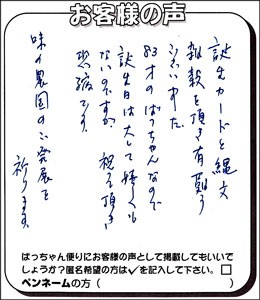 お客様の声
誕生カードと縄文
雑穀を頂き有難う
ございました。
83才のばっちゃんなので
誕生日は大して嬉しくも
ないのですが、祝って頂き
恐縮です。
味の農園のご発展を
祈ります。
ばっちゃん便りにお客様の声として掲載してもいいで
しょうか?匿名希望の方は✓を記入して下さい。□
ペンネームの方( )